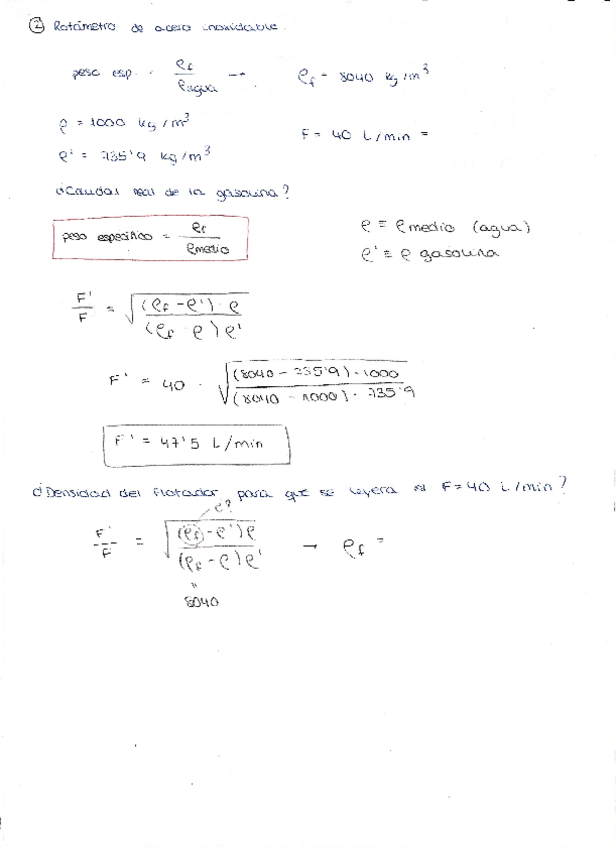 ② Rotámetro de acero inoxidable.
peso esp. = ρf / ρagua → ρf = 8040 kg/m³
ρ = 1000 kg/m³
F = 40 L/min =
ρ' = 735'9 kg/m³
¿Caudal real de la gasolina?
peso específico = ρf / ρmedio
ρ = ρmedio (agua)
ρ' = ρ gasolina
F'/F = √((ρf - ρ')·ρ / (ρf - ρ)ρ')
F' = 40 · √((8040 - 735'9)·1000 / (8040 - 1000)·735'9)
F' = 47'5 L/min
¿Densidad del flotador para que se leyera F = 40 L/min?
ρ?
F'/F = √((ρf - ρ')ρ / (ρf - ρ)ρ') → ρf =
=
8040